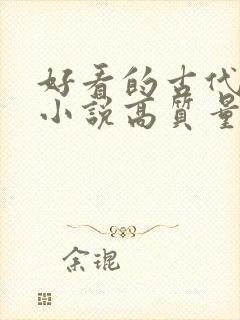 好看的古代
小説高質量
余琨